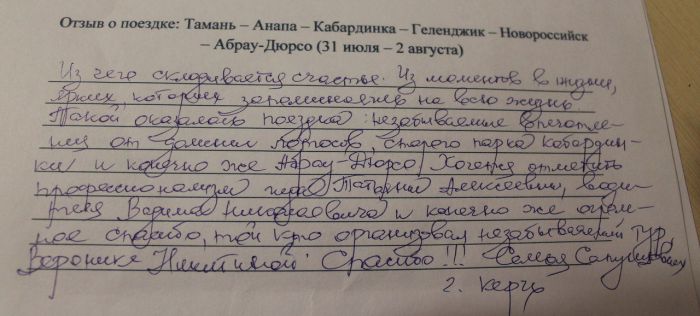 Отзыв о поездке: Тамань – Анапа – Кабардинка – Геленджик – Новороссийск
– Абрау-Дюрсо (31 июля – 2 августа)
Из чего складывается счастье. Из моментов в жизни,
ярких, которых запоминаешь на всю жизнь.
Такой оказалась поездка: незабываемые впечатле-
ния от долины лотосов, старого парка Кабардин-
ки и конечно же Абрау-Дюрсо. Хочется отметить
профессионализм Татьяны Алексеевны, води-
теля Вадима Николаевича и конечно же огром-
ное спасибо, той кто организовал незабываемый тур
Веронике Никитиной. Спасибо!!! Семья
г. Керчь